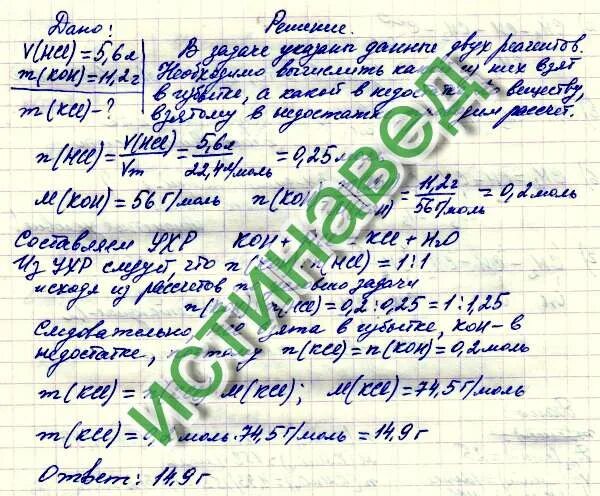 Дано:
Решение.
V(HCl) = 5,6л
m(KOH) = 11,2г
m(KCl) - ?
В задаче указаны данные двух реагентов.
Необходимо вычислить них взят
в избытке, а какой в веществу,
взятому в рассчет.
n(HCl) = V(HCl)/Vm = 5,6л/22,4л/моль = 0,25
M(KOH) = 56 г/моль n(KO = 11,2г/56г/моль = 0,2 моль
Составляем УХР KOH + = KCl + H2O
Из УХР следует, что n n(HCl) = 1:1
исходя из рассчетов задачи
n( (HCl) = 0,2 : 0,25 = 1 : 1,25
Следовательно в избытке, KOH - в
недостатке, n(KCl) = n(KOH) = 0,2 моль
m(KCl) = M(KCl); M(KCl) = 74,5 г/моль
m(KCl) = моль · 74,5 г/моль = 14,9 г
Ответ: 14,9 г
истинавед